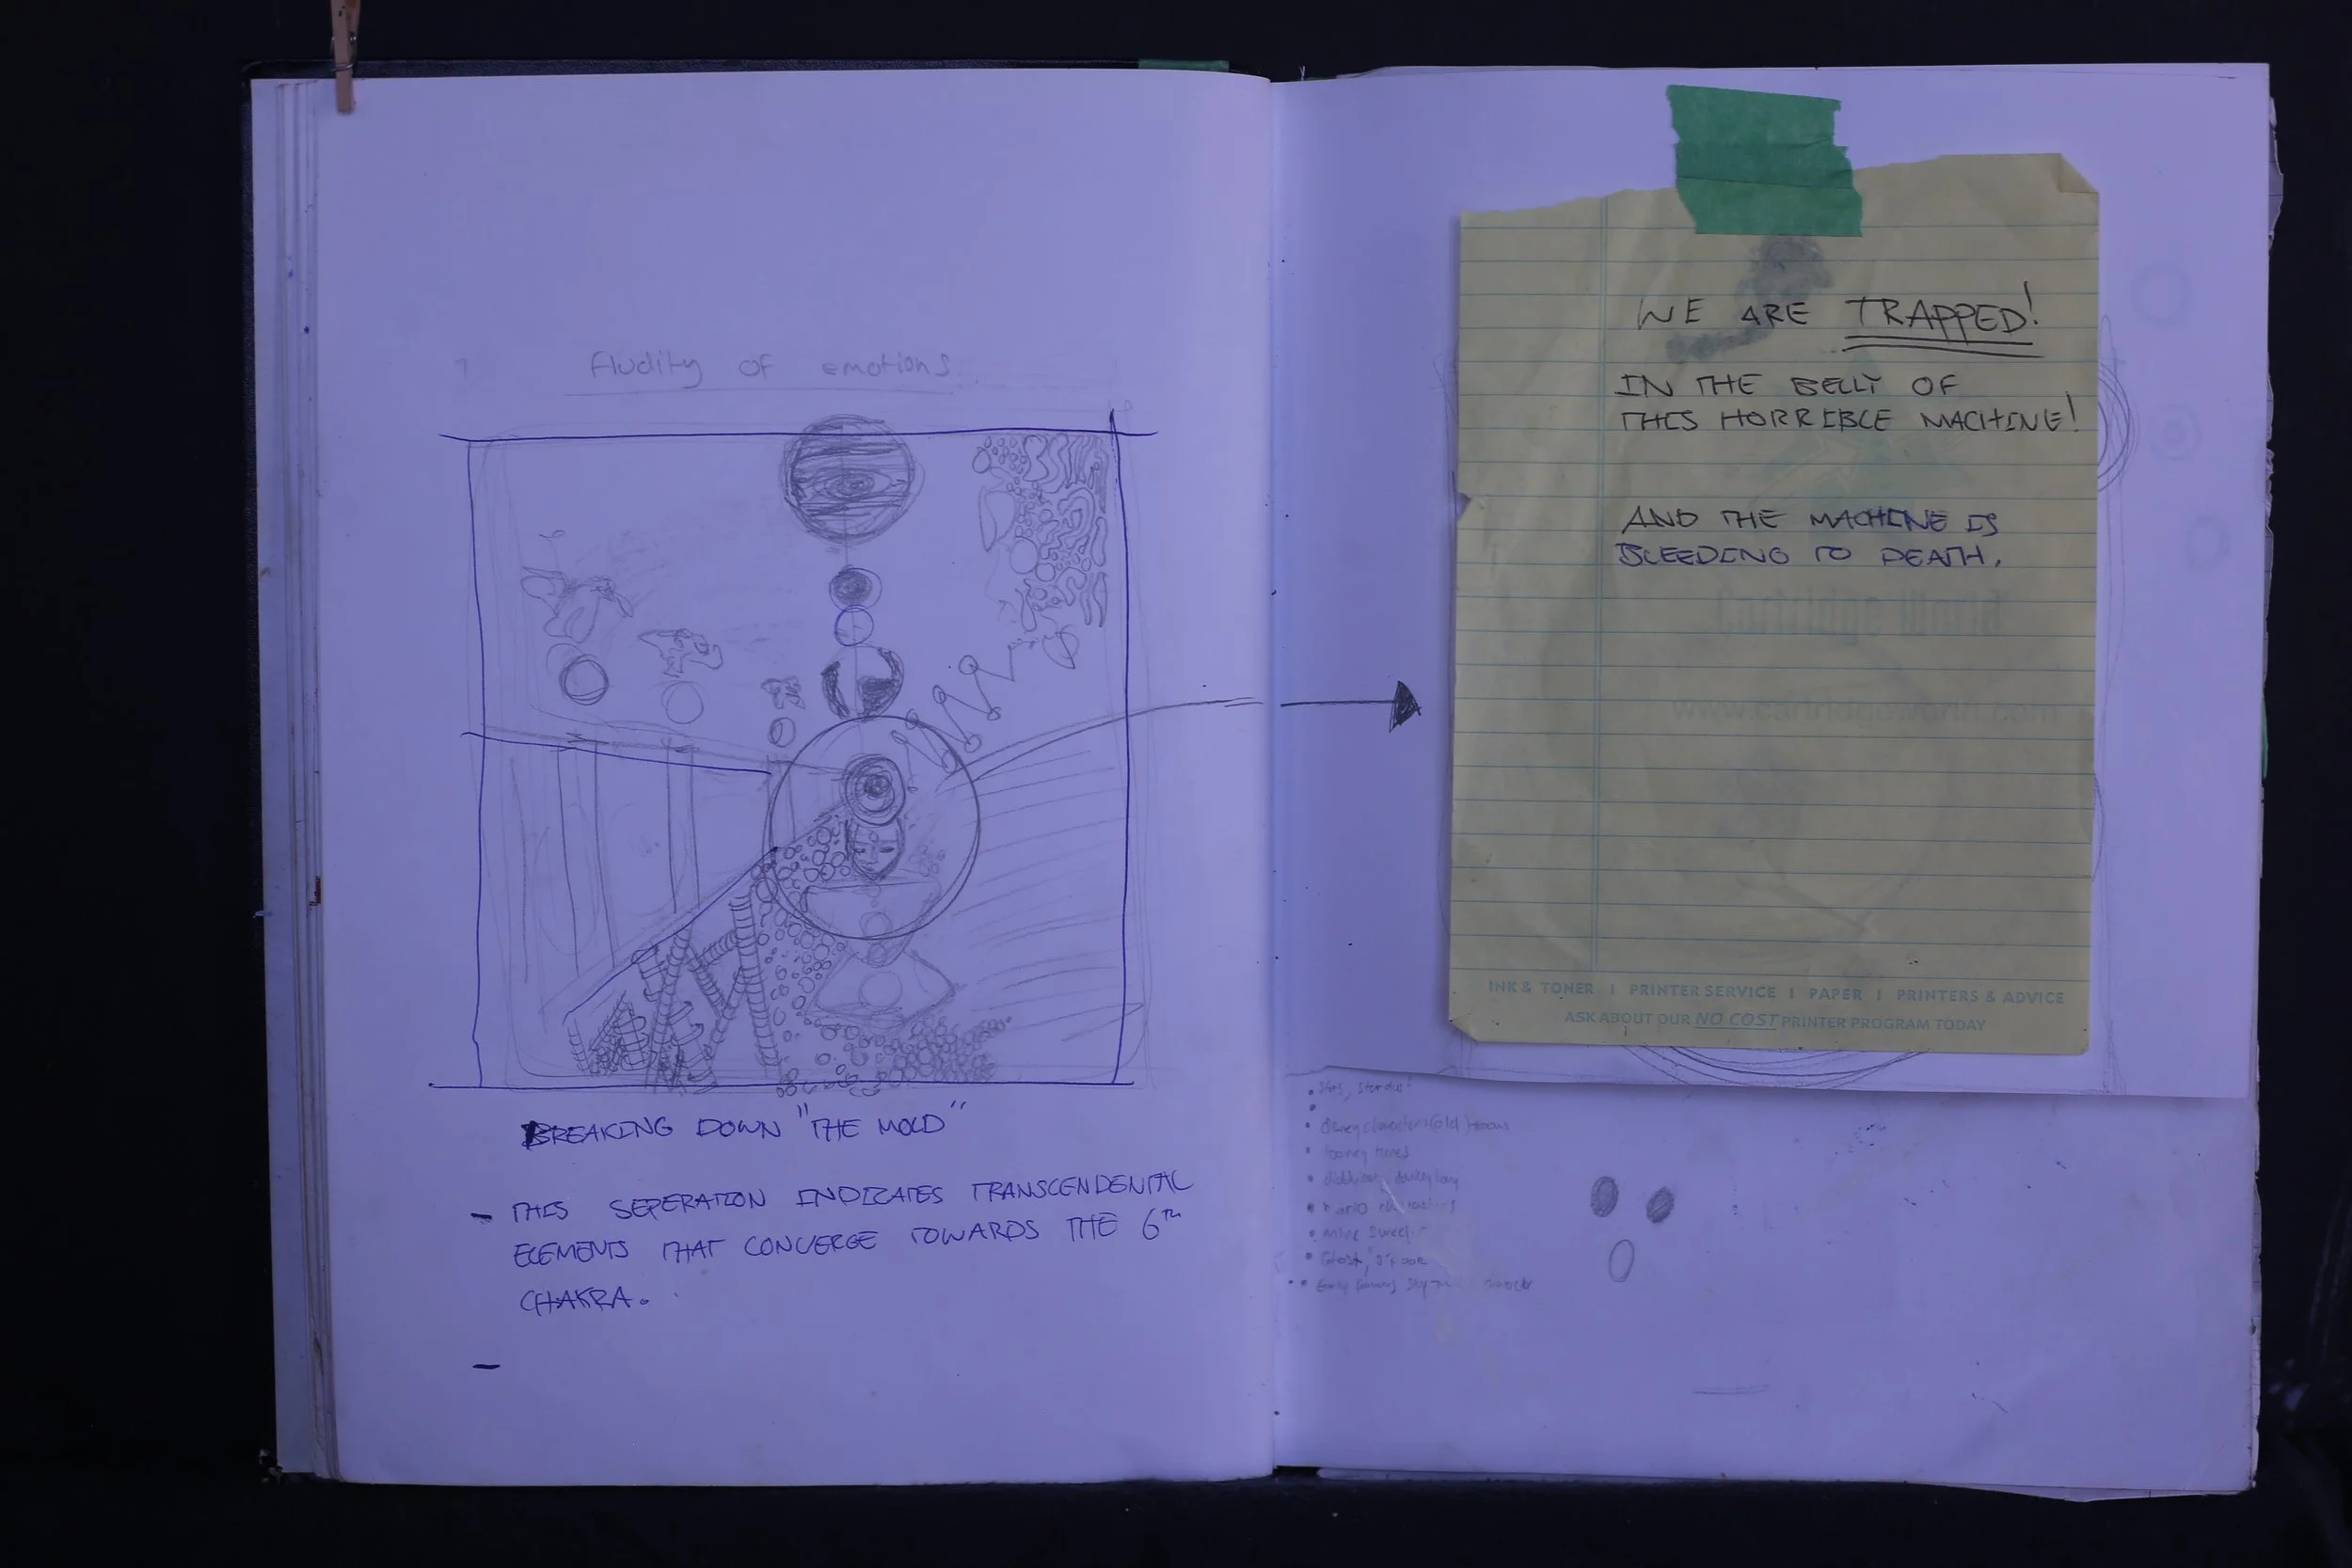 fludity of emotions
BREAKING DOWN "THE MOLD"
- THIS SEPERATION INDICATES TRANSCENDENTAL
ELEMENTS THAT CONVERGE TOWARDS THE 6TH
CHAKRA.
-
WE ARE TRAPPED!
IN THE BELLY OF
THIS HORRIBLE MACHINE!
AND THE MACHINE IS
BLEEDING TO DEATH.
Cartridge World
www.cartridgeworld.com
INK & TONER | PRINTER SERVICE | PAPER | PRINTERS & ADVICE
ASK ABOUT OUR NO COST PRINTER PROGRAM TODAY
• looney tunes
• Mario characters
• Ghost,